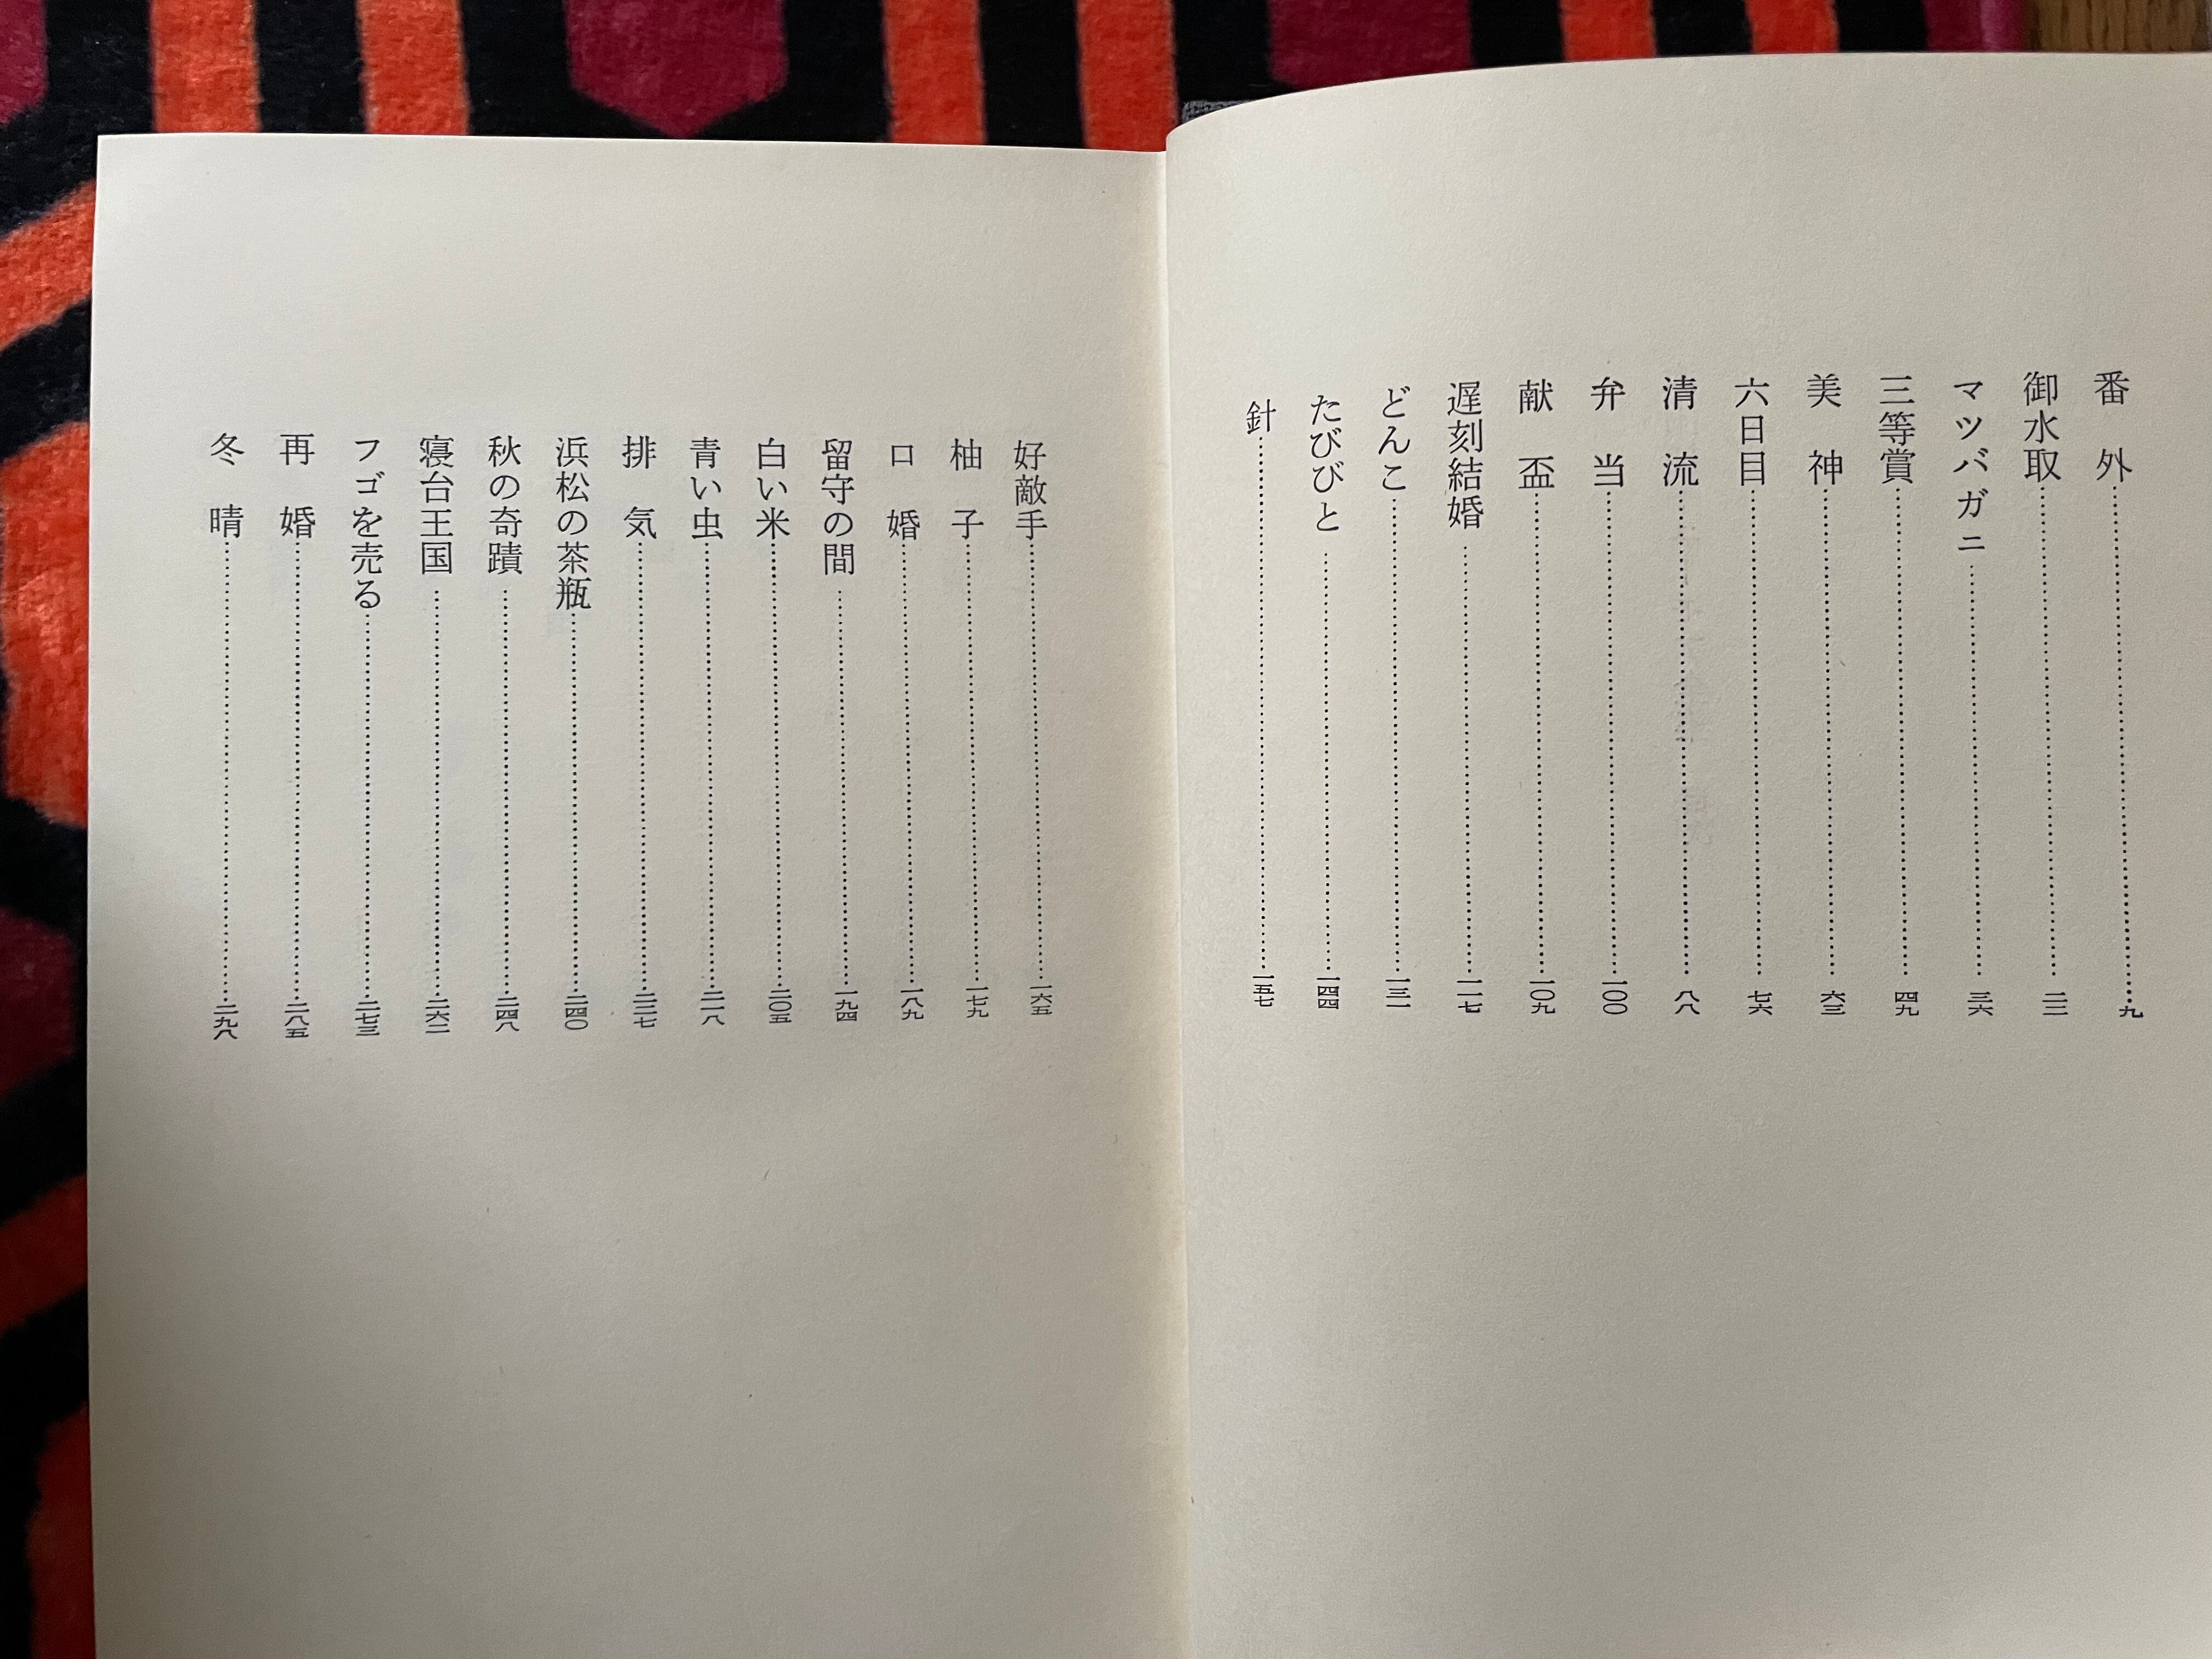 番外……九
御水取……二二
マツバガニ……三六
三等賞……四九
美神……六三
六日目……七六
清流……八八
弁当……一〇〇
献盃……一〇九
遅刻結婚……一一七
どんこ……一三一
たびびと……一四四
針……一五七
好敵手……一六五
柚子……一七九
口婚……一八九
留守の間……一九四
白い米……二〇五
青い虫……二一八
排気……二二七
浜松の茶瓶……二四〇
秋の奇蹟……二四八
寝台王国……二六二
フゴを売る……二七三
再婚……二八五
冬晴……二九八